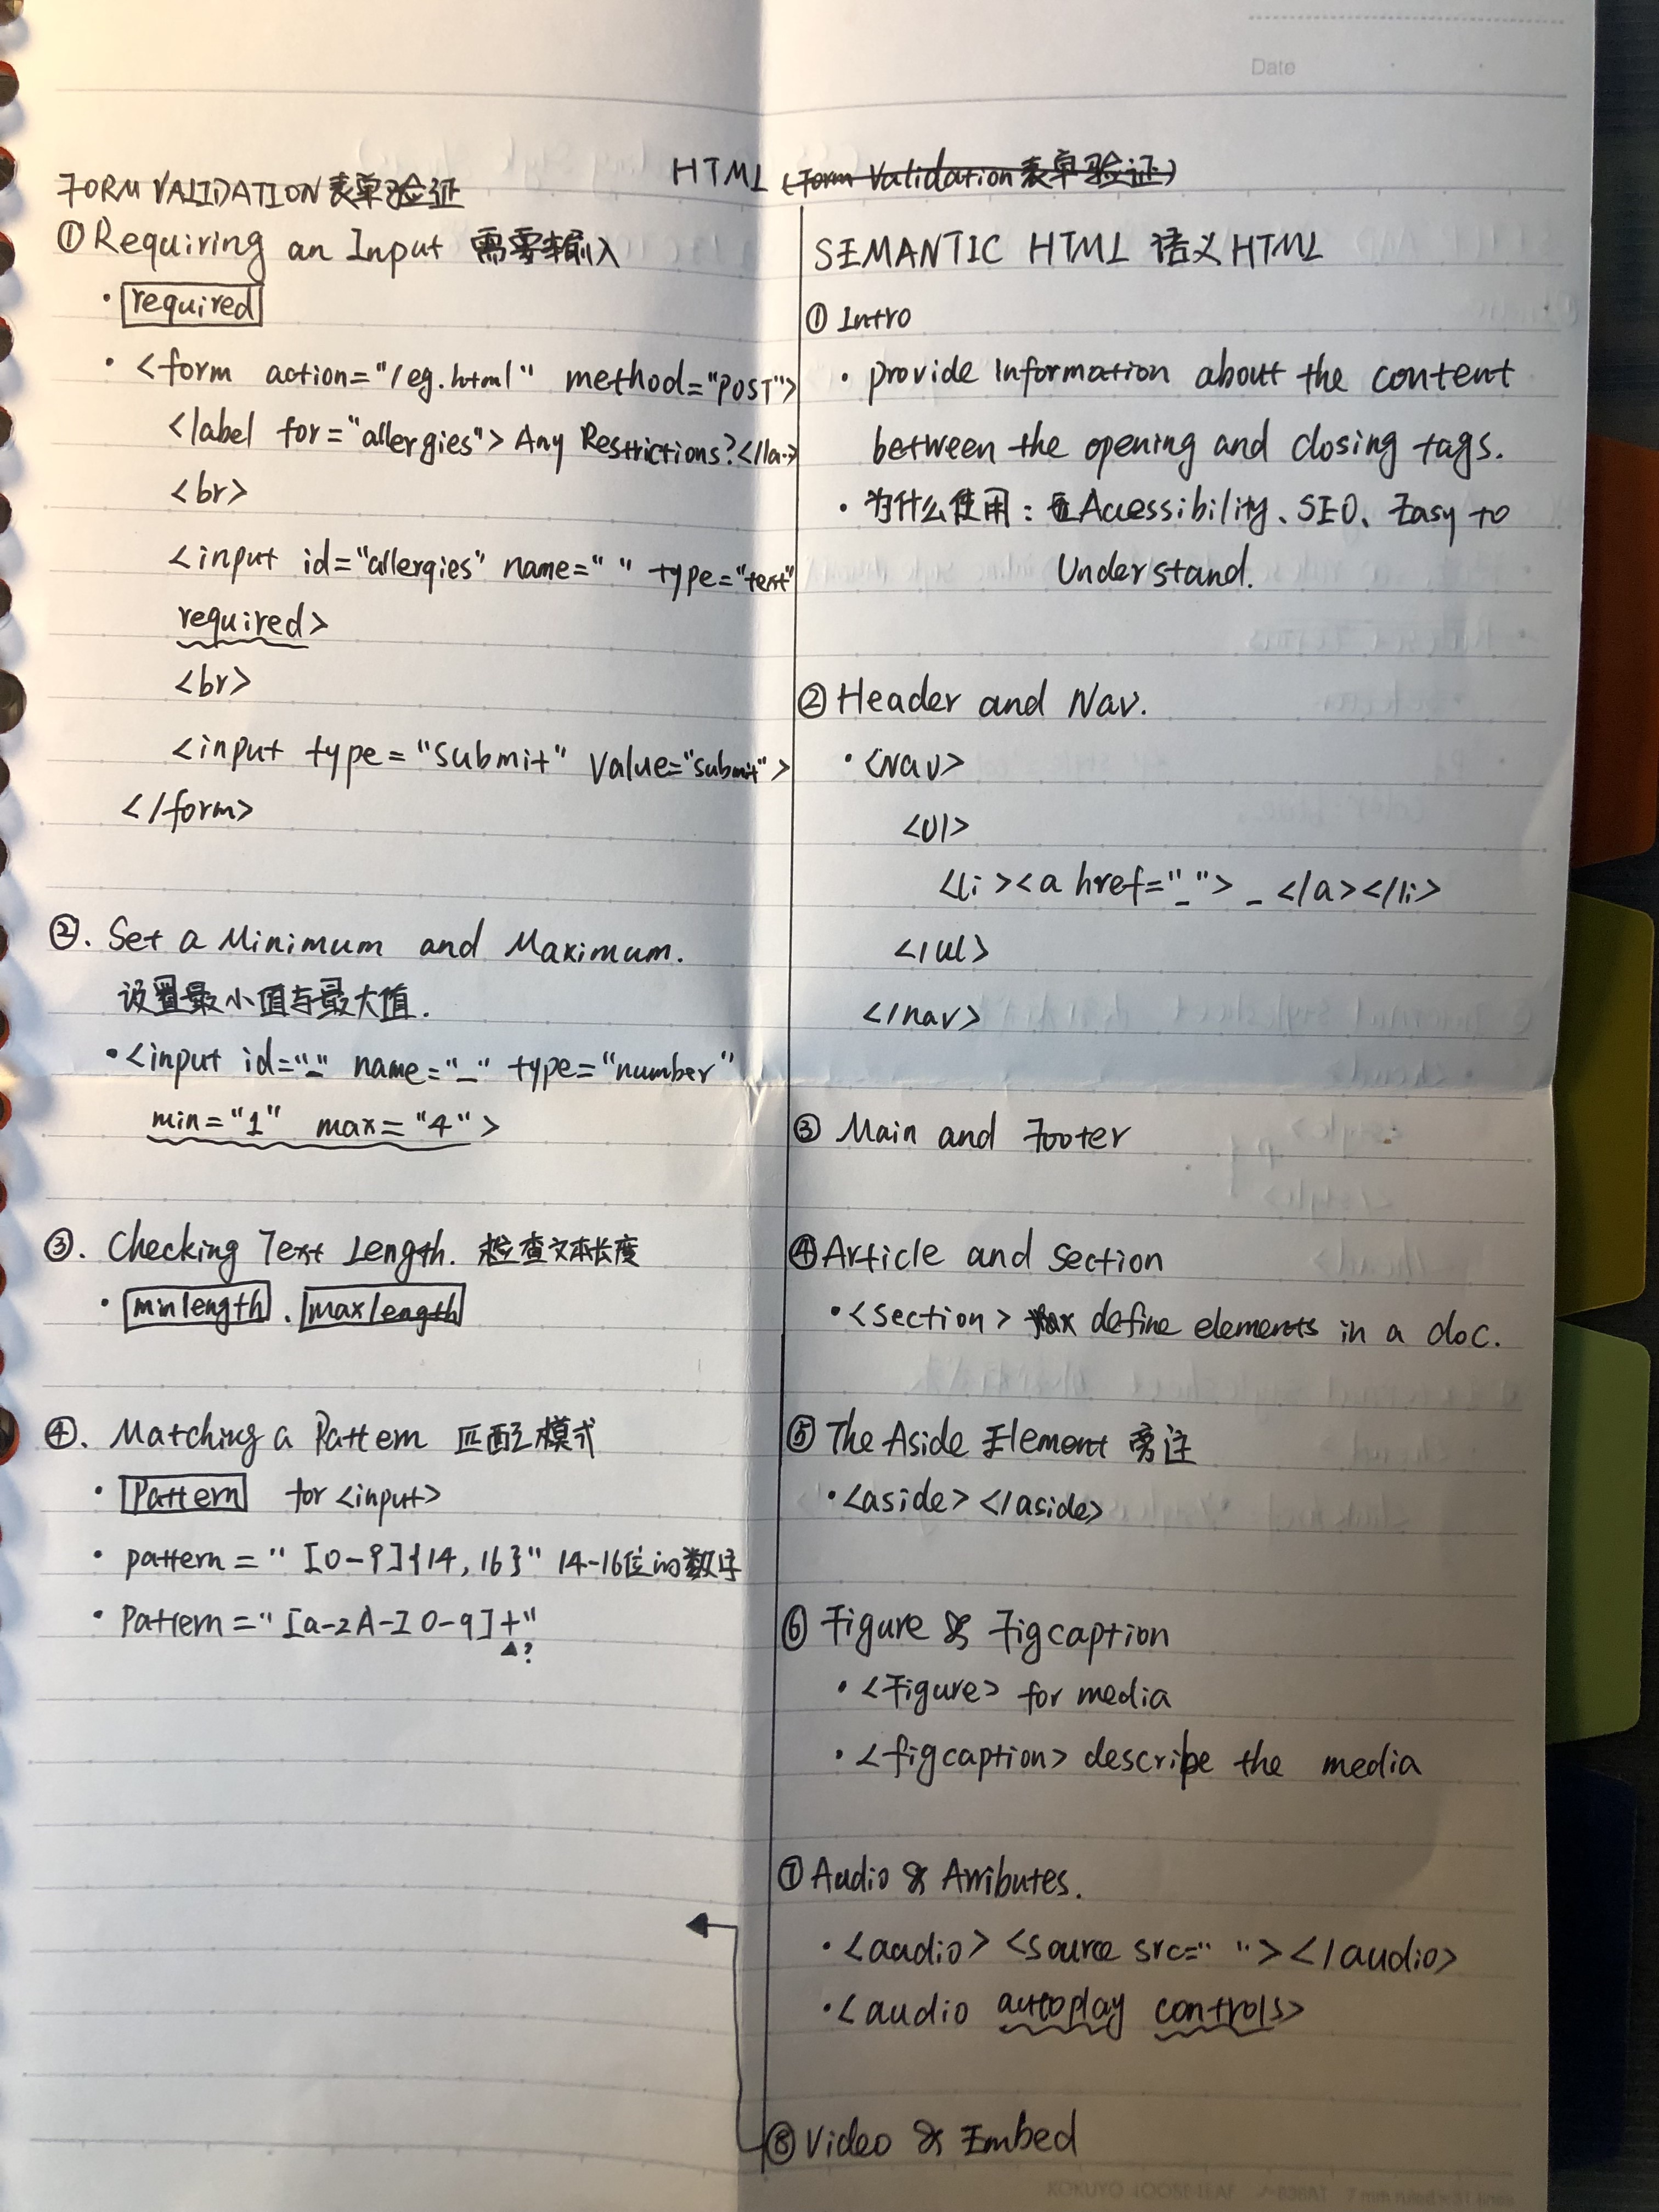 Date
HTML (Form Validation 表单验证)
FORM VALIDATION 表单验证
① Requiring an Input 需要输入
· required
· <form action="/eg.html" method="POST">
<label for="allergies"> Any Restrictions?</la..>
<br>
<input id="allergies" name=" " type="text"
required>
<br>
<input type="submit" value="submit">
</form>
②. Set a Minimum and Maximum.
设置最小值与最大值.
· <input id="_" name="_" type="number"
min="1" max="4">
③. Checking Text Length. 检查文本长度
· minlength . maxlength
④. Matching a Pattern 匹配模式
· Pattern for <input>
· pattern=" [0-9]{14,16}" 14-16位的数字
· Pattern=" [a-zA-Z0-9]+"
▲?
SEMANTIC HTML 语义HTML
① Intro
· provide information about the content
between the opening and closing tags.
· 为什么使用: Accessibility、SEO、Easy to
Understand.
② Header and Nav.
· <nav>
<ul>
<li><a href="_"> _ </a></li>
</ul>
</nav>
③ Main and Footer
④ Article and Section
· <section> define elements in a doc.
⑤ The Aside Element 旁注
· <aside></aside>
⑥ Figure & Figcaption
· <Figure> for media
· <figcaption> describe the media
⑦ Audio & Atributes.
· <audio> <source src=" "></audio>
· <audio autoplay controls>
⑧ Video & Embed
KOKUYO LOOSE-LEAF ノ-836AT 7 mm ruled × 31 lines